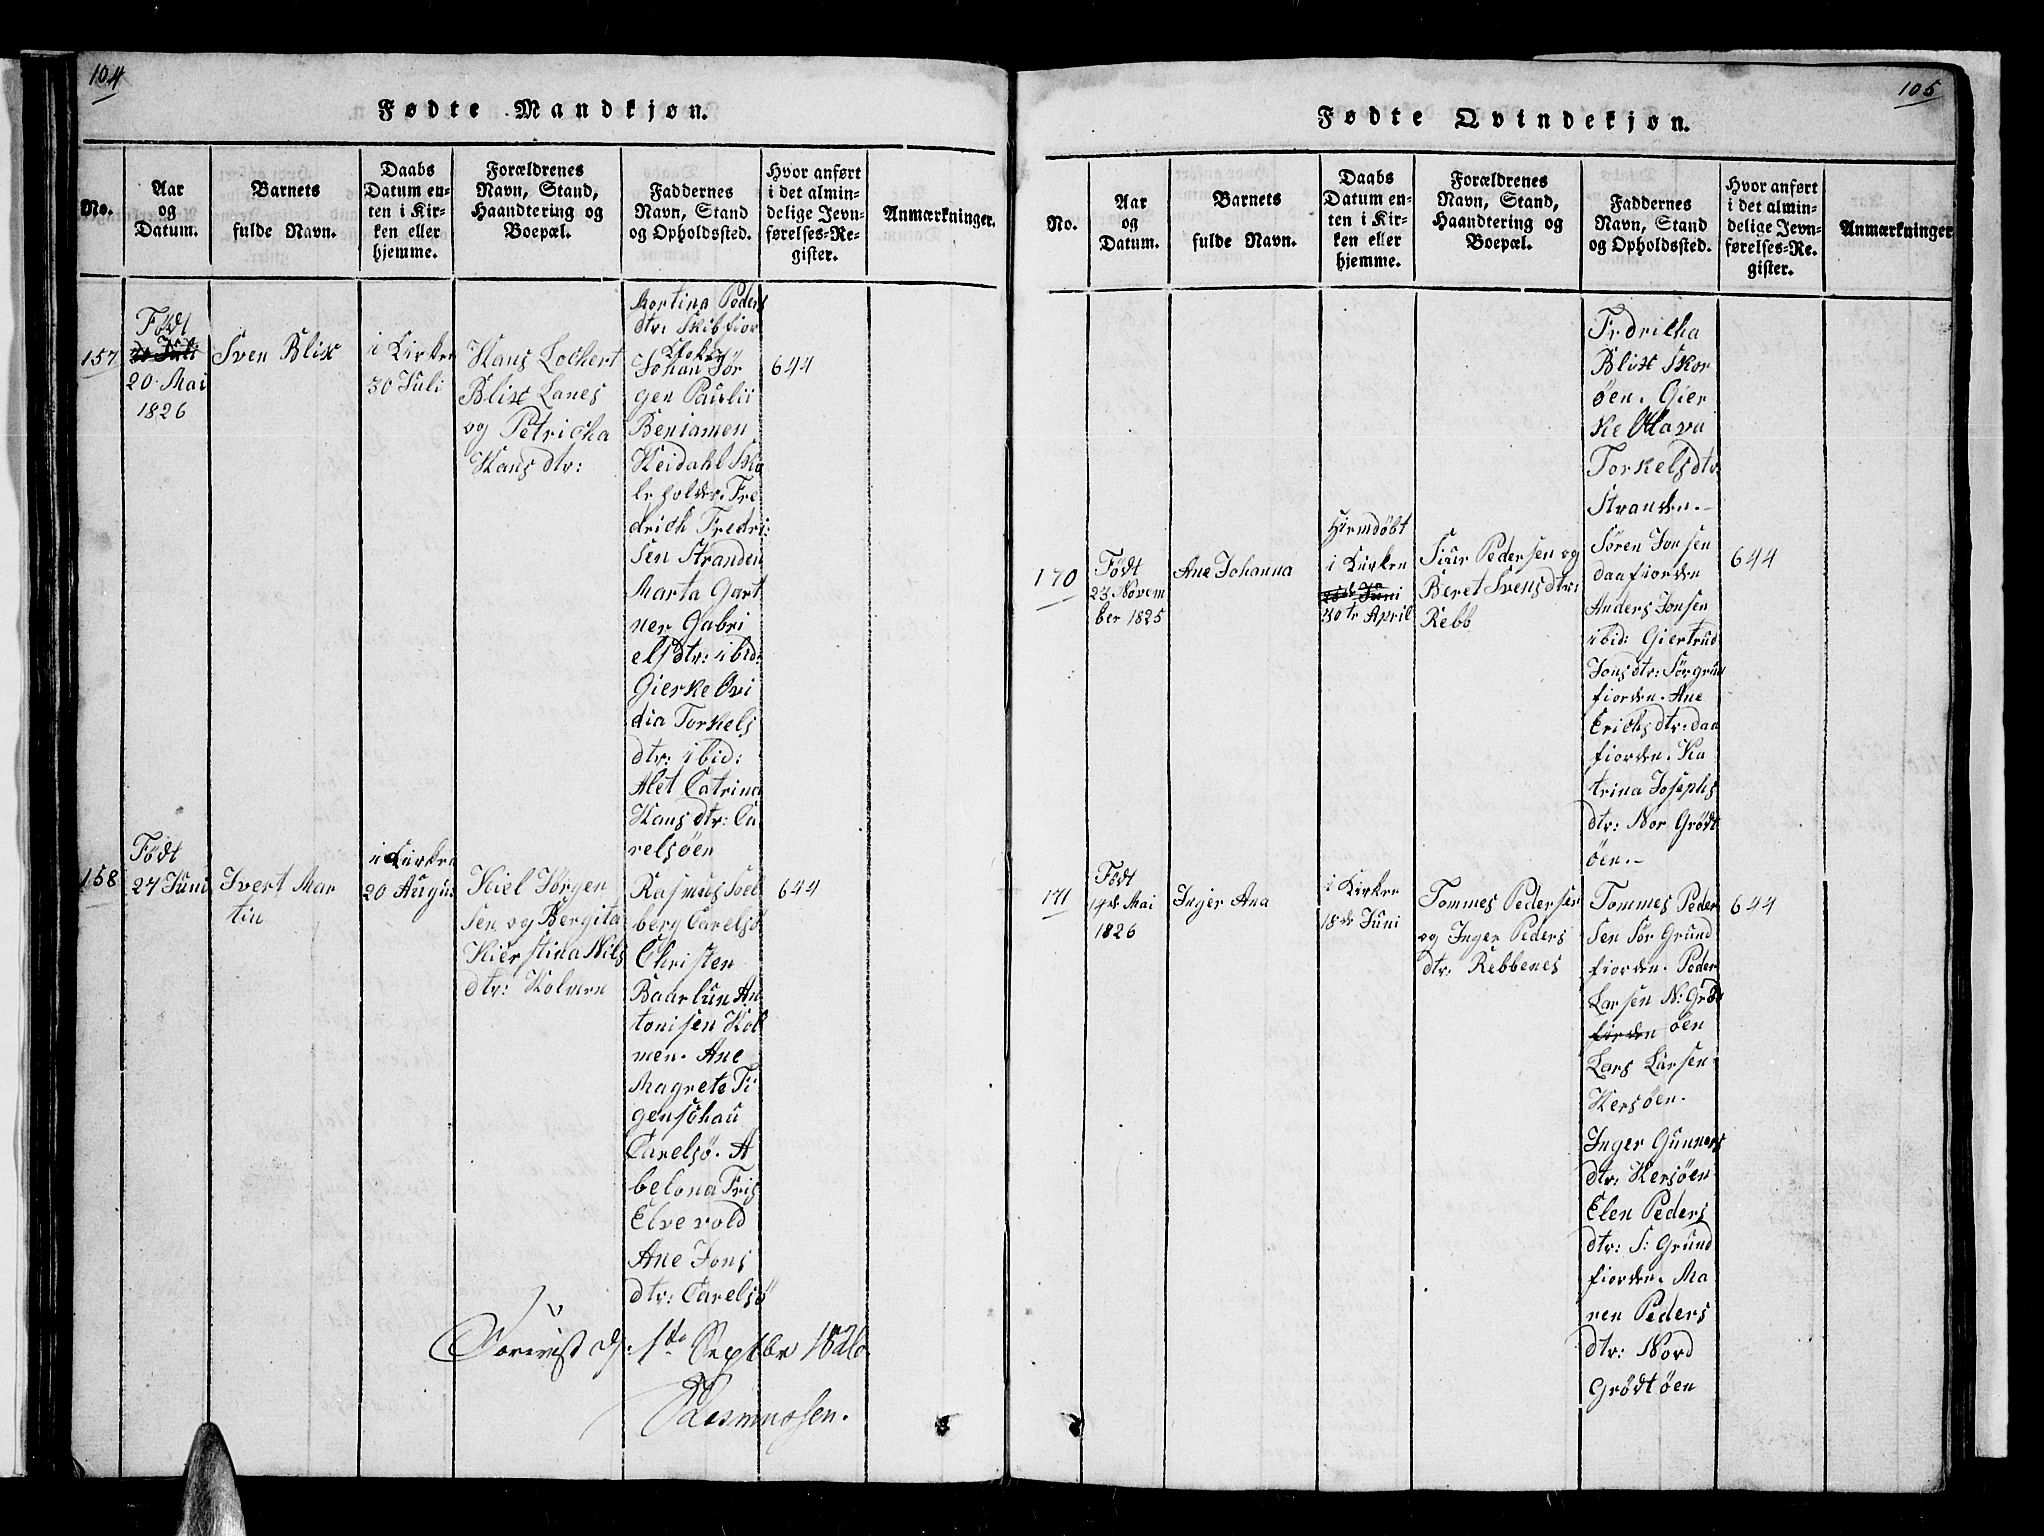 104
Fødte Mandkjøn.
No.
Aar
og
Datum.
Barnets
fulde Navn.
Daabs
Datum en-
ten i Kir-
ken eller
hjemme.
Forældrenes
Navn, Stand,
Haandtering og
Boepæl.
Faddernes
Navn, Stand
og Opholdssted.
Hvor anført
i det almin-
delige Jevn-
førelses-Re-
gister.
Anmærkninger.
Mortina Peders
dtr: Skibfior
157
Født
20 Juli
20 Mai
1826
Sven Blix
i Kirken
30 Juli
Hans Lochert
Blix Lanes
og Petricha
Hansdtr:
Kloker
Johan Jør
gen Paulii
Beniamen
Heidahl Sko
leholder. Fre
drich Fredri
sen Stranden
Marta Gart
ner Gabri
elsdtr: ibid:
Gierke Ovi
dia Torkels
dtr: ibid:
Alet Catrina
Hansdtr: Ca
relsöen
644
158
Født
27 Juni
Ivert Mar
tin
i Kirken
20 Augus
Kiel Jørgen
sen og Bergita
Kierstina Nils
dtr: Holmen
Rasmus Soel
berg Carelsö
Christen
Baarlun An
tonisen Hol
men. Ane
Magrete Ti
genschau
Carelsö. A
belona Fris
Elvevold
Ane Jons
dtr: Carelsö
644
1ste Septbr 1826
Rasmussen.
105
Fødte Qvindekjøn.
No.
Aar
og
Datum.
Barnets
fulde Navn.
Daabs
Datum en-
ten i Kir-
ken eller
hjemme.
Forældrenes
Navn, Stand,
Haandtering og
Boepæl.
Faddernes
Navn, Stand
og Opholdssted.
Hvor anført
i det almin-
delige Jevn-
førelses-Re-
gister.
Anmærkninger
Fredricha
Blix Skor
öen. Gier
ke Olava
Torkelsdtr
Stranden.
170
Født
23 Novem
ber 1825
Ane Johanna
Hiemdöbt
i Kirken
30te April
Siur Pedersen og
Beret Svensdtr:
Rebb
Sören Jonsen
daafiorden
Anders Jonsen
ibid: Giertrud
Jonsdtr: Sörgrun
fiorden. Ane
Erichsdtr: daa
fiorden. Ka
trina Josephs
dtr: Nor Grödt
öen.
644
171
Født
14de Mai
1826
Inger Ana
i Kirken
18de Juni
Tommes Pedersen
og Inger Peders
dtr: Rebbenes
Tommes Peder
sen Sör Grund
fiorden. Peder
Larsen N: Gröd
fiorden öen
Lars Larsen
Hersöen.
Inger Gunners
dtr: Hersöen
Elen Peders
dtr: S: Grund
fiorden. Ma
ren Peders
dtr: Nord
Grödtöen
644